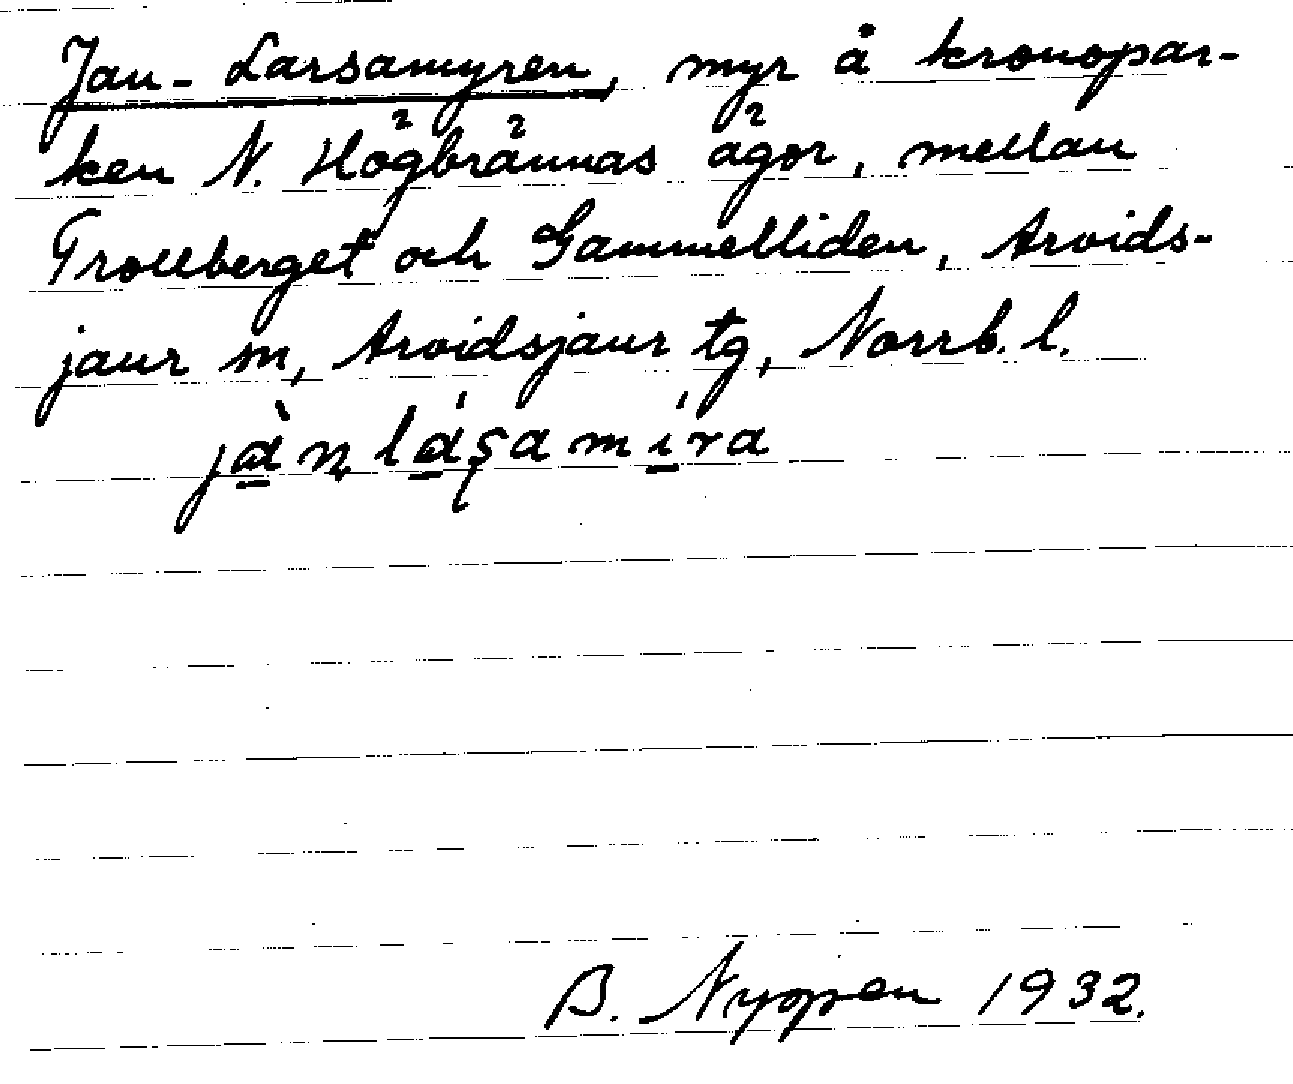 Jan-Larsamyren, myr å kronopar-
ken N. Högbrännas ägor, mellan
Trollberget och Gammelliden, Arvids-
jaur sn, Arvidsjaur tg, Norrb. l.
B. Nyopen 1932.